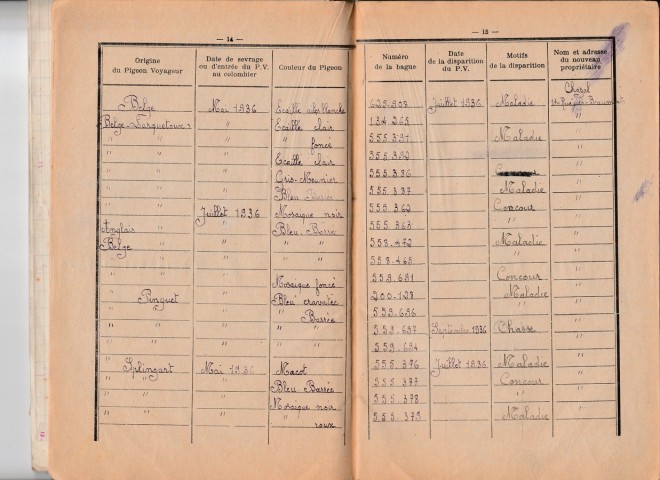 — 14 —
Origine
du Pigeon Voyageur
Date de sevrage
ou d'entrée du P.V.
au colombier
Couleur du Pigeon
Belge Mai 1936 Ecaille
Belge " Ecaille clair
" " " " foncé
" " " Ecaille clair
" " " Gris-Meunier
" " " Bleu
" " Juillet 1936 Mosaique noir
Anglais " Bleu-Barré
Belge " " "
" "
" " " Mosaique foncé
Pinguet " Bleu
" " " Barrée
" " " "
" " "
Splingart Mai 1936 Macot
" " " Bleu Barrée
" " Mosaique noir
" " " " roux
— 15 —
Numéro
de la bague
Date
de la disparition
du P.V.
Motifs
de la disparition
Nom et adresse
du nouveau
propriétaire
625.908 Juillet 1936 Maladie
134.263 " "
555.391 " Maladie "
555.392 " "
555.386 " "
555.387 " Maladie "
555.362 " Concour "
555.363 " " "
558.472 " Maladie "
558.463 " " "
559.691 " Concour "
200.128 " Maladie "
559.696 " "
559.697 Septembre 1936 Chasse "
559.694 "
555.376 Juillet 1936 Maladie "
555.377 " Concour "
555.378 " "
555.379 " Maladie "